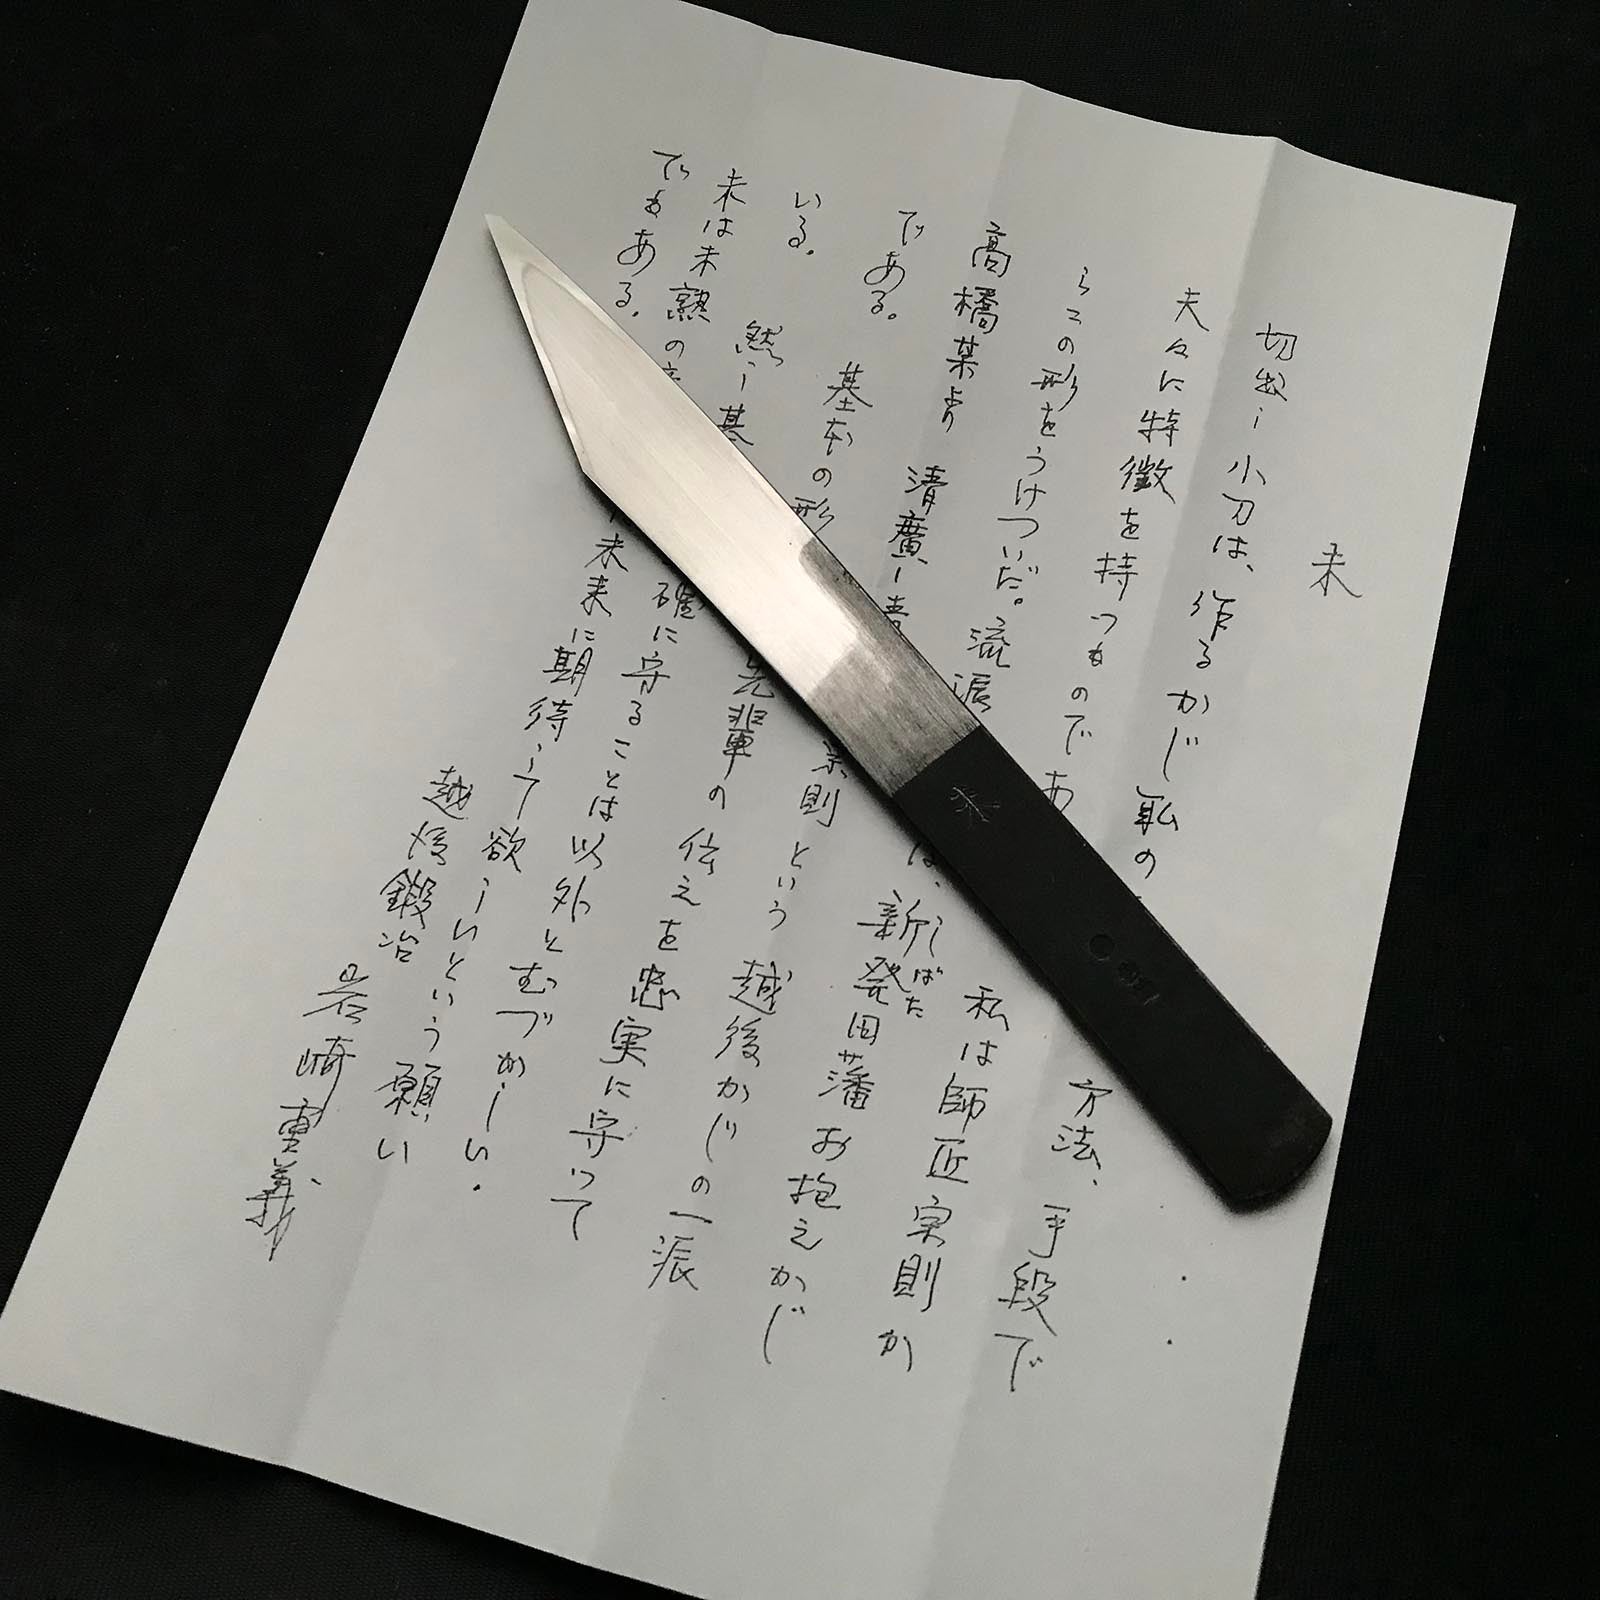 未
切出し小刀は、作るかじ 私の
夫々に特徴を持つものであ 方法、手段で
らこの形をうけついだ。流派 私は師匠宗則か
高橋某より 清廣 は、新発田藩お抱えかじ
しばた
である。 基本の形 宗則という 越後かじの一派
いる。 然し基 先輩の伝えを忠実に守って
未は未熟の 確に守ることは以外とむづかしい。
でもある。 未来に期待して欲しいという願い
越後鍛冶 岩崎重義
未